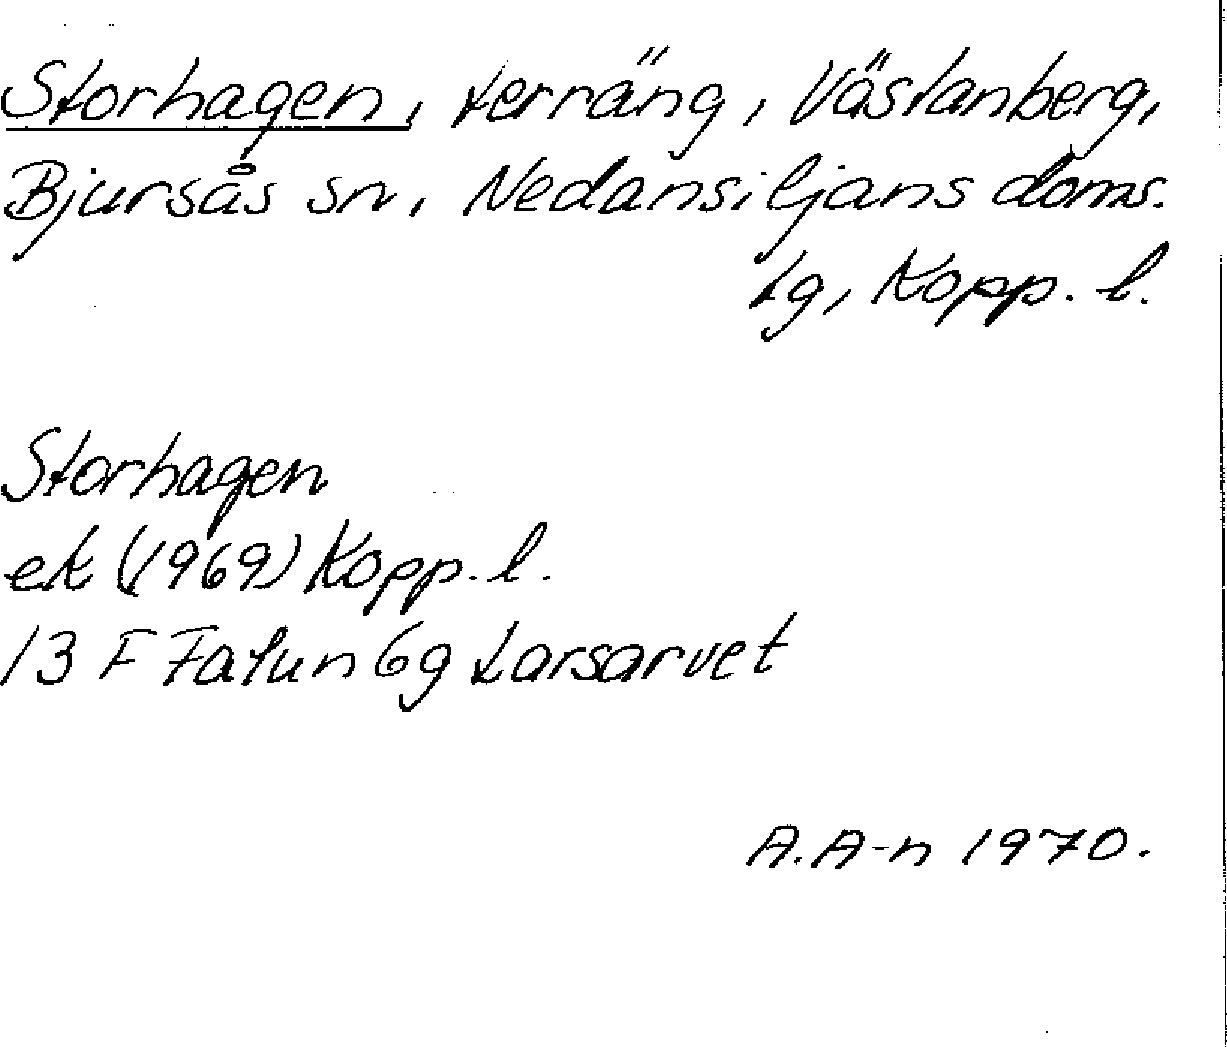 Storhagen, terräng, Västanberg,
Bjursås sn, Nedansiljans doms.
tg, Kopp. l.
Storhagen
ek (1969) Kopp. l.
13 F Falun 6g Larsarvet
A. A-n 1970.